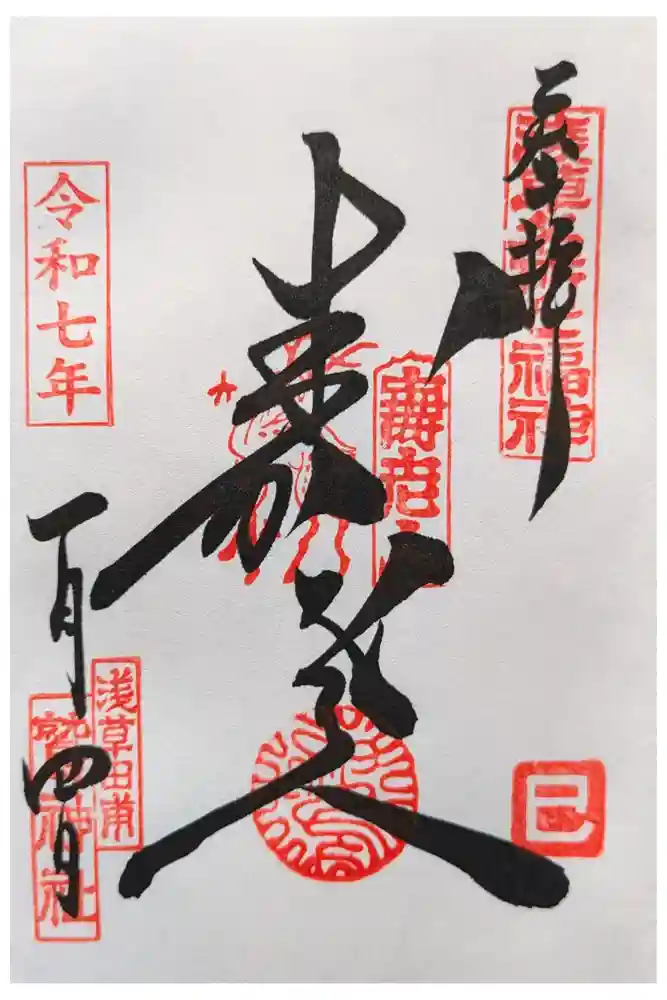 奉拝
浅草名所七福神
寿老人
壽老人
巳
令和七年
一月四日
浅草田甫
鷲神社